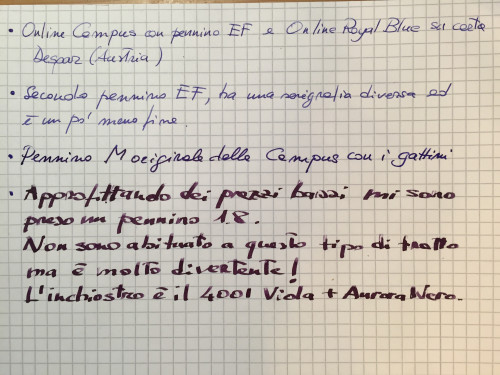 • Online Campus con pennino EF e Online Royal Blue su carta
Despar (Austria)
• Secondo pennino EF, ha una serigrafia diversa ed
è un po' meno fine.
• Pennino M originale della Campus con i gattini
• Approfittando dei prezzi bassi mi sono
preso un pennino 1.8.
Non sono abituato a questo tipo di tratto
ma è molto divertente!
L'inchiostro è il 4001 Viola + Aurora Nero.